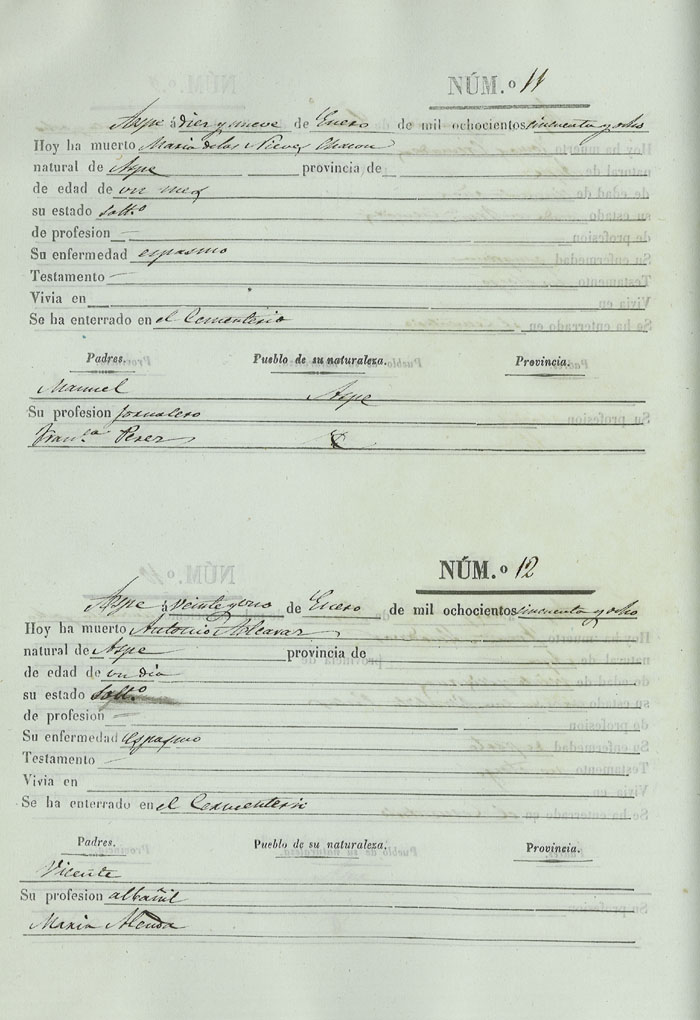 NÚM.º 11
Aspe á diez y nueve de Enero de mil ochocientos cincuenta y ocho
Hoy ha muerto Maria de las Nieves Chacon
natural de Aspe provincia de
de edad de un mes
su estado solt.º
de profesion —
Su enfermedad espasmo
Testamento —
Vivia en
Se ha enterrado en el Cementerio
Padres. Pueblo de su naturaleza. Provincia.
Manuel Aspe
Su profesion jornalero
Fran.ca Perez
NÚM.º 12
Aspe á veinte y uno de Enero de mil ochocientos cincuenta y ocho
Hoy ha muerto Antonio Alcaraz
natural de Aspe provincia de
de edad de un dia
su estado solt.º
de profesion —
Su enfermedad espasmo
Testamento —
Vivia en
Se ha enterrado en el Cementerio
Padres. Pueblo de su naturaleza. Provincia.
Vicente
Su profesion albañil
Maria Alenda